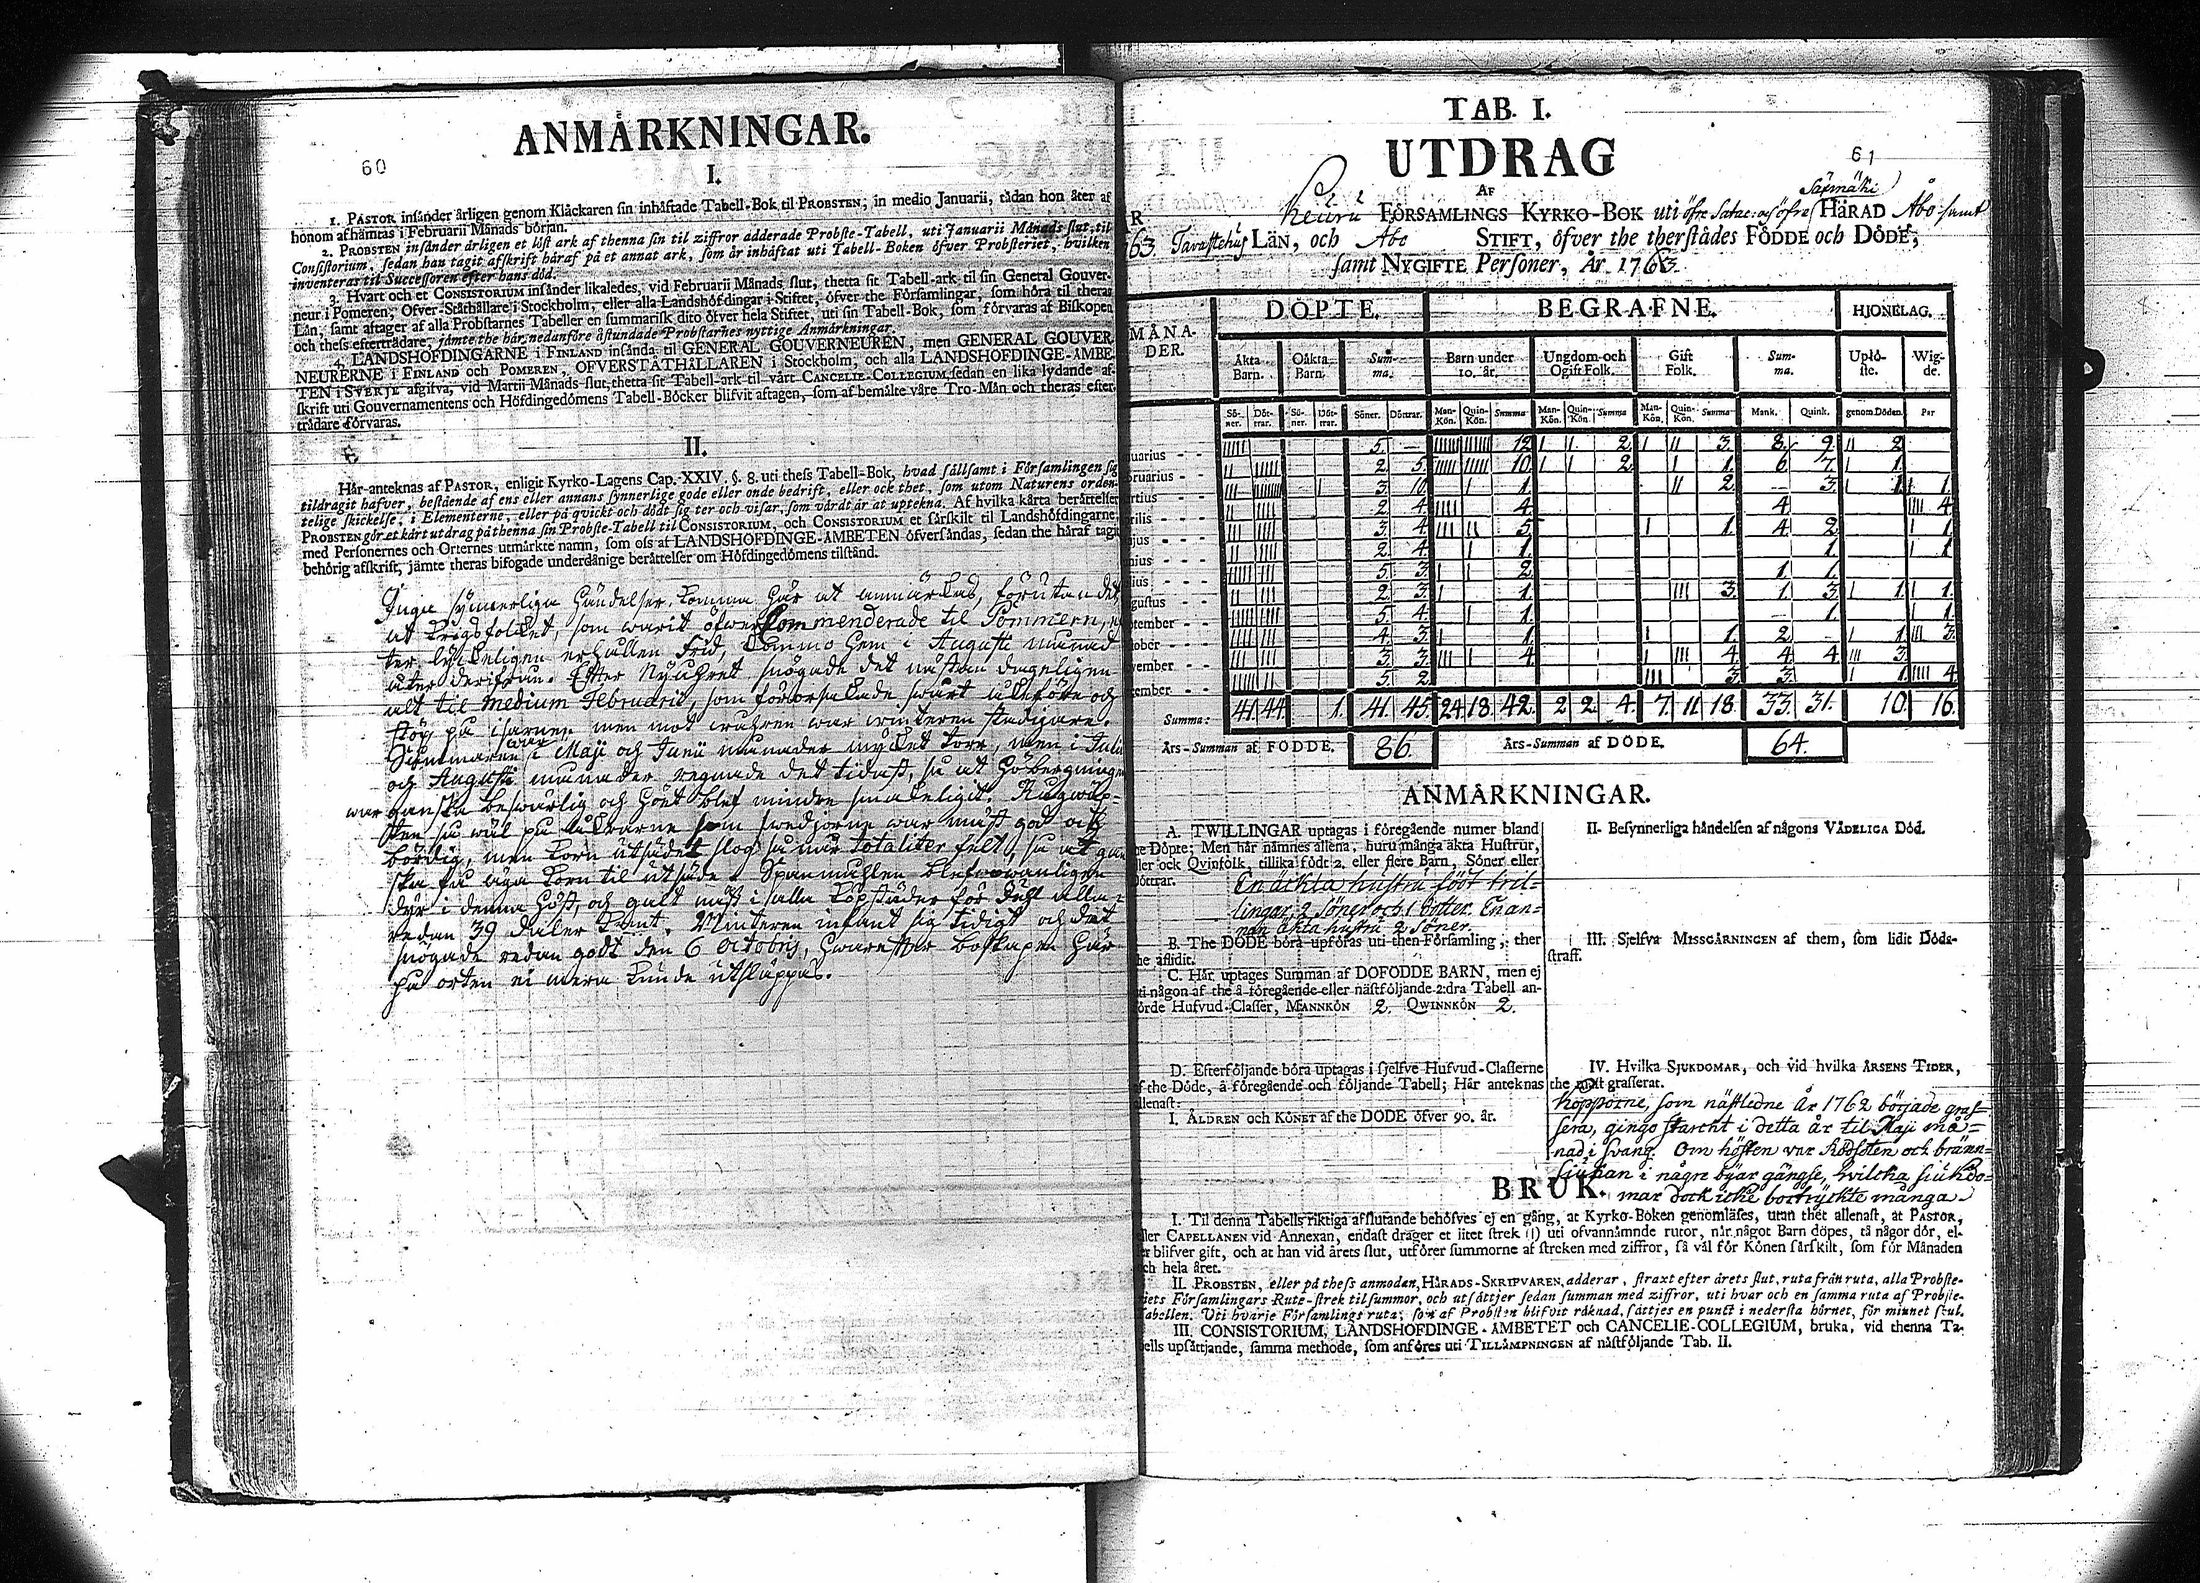 60
ANMÅRKNINGAR.
I.
1. PASTOR insånder årligen genom Klåckaren sin inhåftade Tabell-Bok til PROBSTEN, in medio Januarii, tådan hon åter af
honom afhåmtas i Februarii Månads början.
2. PROBSTEN insånder årligen et löst ark af thenna sin til ziffror adderade Probste-Tabell, uti Januarii Månads slut, til
Consistorium, sedan han tagit afskrift håraf på et annat ark, som år inhåftat uti Tabell-Boken öfver Probsteriet, hvilken
inventeras til Successoren efter hans död.
3. Hvart och et CONSISTORIUM insånder likaledes, vid Februarii Månads slut, thetta sit Tabell-ark til sin General Gouver-
neur i Pomeren, Öfver-Ståthållare i Stockholm, eller alla Landshöfdingar i Stiftet, öfver the Församlingar, som höra til theras
Lån, samt aftager af alla Probstarnes Tabeller en summarisk dito öfver hela Stiftet, uti sin Tabell-Bok, som förvaras af Biskopen
och thess eftertrådare, jämte the hår nedanföre åstundade Probstarnes nyttige Anmårkningar.
4. LANDSHÖFDINGARNE i FINLAND insånda til GENERAL GOUVERNEUREN, men GENERAL GOUVER-
NEURERNE i FINLAND och POMEREN, ÖFVERSTÅTHÅLLAREN i Stockholm, och alla LANDSHÖFDINGE-ÅMBE-
TEN i SVERJE afgifva, vid Martii Månads slut, thetta sit Tabell-ark til vårt CANCELIE-COLLEGIUM, sedan en lika lydande af-
skrift uti Gouvernamentens och Höfdingedömens Tabell-Böcker blifvit aftagen, som af bemålte våre Tro-Mån och theras efter-
trådare förvaras.
II.
Hår anteknas af PASTOR, enligit Kyrko-Lagens Cap. XXIV. §. 8. uti thess Tabell-Bok, hvad sållsamt i Församlingen sig
tildragit hafver, bestående af ens eller annans synnerlige gode eller onde bedrift, eller ock thet, som utom Naturens orden-
telige skickelse, i Elementerne, eller på qvickt och dödt sig ter och visar, som vårdt år at uptekna. Af hvilka kårta beråttelser
PROBSTEN gör et kårt utdrag på thenna sin Probste-Tabell til CONSISTORIUM, och CONSISTORIUM et sårskilt til Landshöfdingarne,
med Personernes och Orternes utmårkte namn, som oss af LANDSHÖFDINGE-ÅMBETEN öfversåndas, sedan the håraf tagit
behörig afskrift, jämte theras bifogade underdånige beråttelser om Höfdingedömens tilstånd.
Inga synnerliga händelser komma här at anmärkas, förutan det
at krigsfolcket, som warit öfwer Commenderade til Pommern,
ter lyckeligen erhållen frid, kommo hem i Augusti månad
åter derifrån. Efter Nyåhret snögade det nästan dageligen
alt til medium Februarii, som förorsakade swårt åkeföre och
stöp på isarne, men mot wåhren war winteren stadigare.
Sommaren war i Maji och Junii månader mycket torr, men i Julii
och Augusti månader regnade det tidast, så at höbergningen
war ganska beswärlig och höet blef mindre smakeligit. Rugwäx-
ten så wäl på åkrarne som swedjorne war mäst god och
bördig, men korn utsädet slog så när totaliter felt, så at gan
ska få äga korn til utsäde. Spanmåhlen blef owanligen
dyr i denna höst, och galt mäst i alla köpstäder för
redan 39 Daler Kpmt. Winteren infant sig tidigt och det
snögade redan godt den 6 Octobris, hwarefter boskapen här
på orten ei mera kunde utsläppas.
TAB. I.
61
UTDRAG
AF
Säxmäki
Keuru FÖRSAMLINGS KYRKO-BOK uti öfre Satac. och öfre HÅRAD Åbo samt
63. Tavastehus LÅN, och Åbo STIFT, öfver the therstådes FÖDDE och DÖDE,
samt NYGIFTE Personer, År 1763.
MÅNA-DER. DÖPTE. BEGRAFNE. HJONELAG.
Åkta Barn. Oåkta Barn. Sum-ma. Barn under 10. år. Ungdom och Ogift Folk. Gift Folk. Sum-ma. Uplö-ste. Wig-de.
Sö-ner. Döt-trar. Sö-ner. Döt-trar. Söner. Döttrar. Man-Kön. Quin-Kön. Summa Man-Kön. Quin-Kön. Summa Man-Kön. Quin-Kön. Summa Mank. Quink. genom Döden. Par
nuarius - - 5. — 12 2 3. 8. 9. 2
bruarius - 2. 5. 10. 2 1. 6 7. 1.
artius - - 3. 10. 1. 2. -- 3. 1. 1.
prilis - - 2. 4. 4. 4. 4.
ajus - - 3. 4. 5. 1. 4. 2. 1
nius - - 2. 4. 1. 1. 1
lius - - 5. 3. 2. 1. 1.
gustus - - 2. 3. 1. 3. 1. 3. 1. 1.
ptember - - 5. 4. 1. - 1. 1.
tober - - 4. 3. 1. 1. 2. - 1. 3.
vember - - 3. 3. 4. 4. 4. 4. 3.
cember - - 5. 2. 3. 3. 1. 4
Summa: 41. 44. 1. 41. 45. 24 18. 42. 2 2. 4. 7. 11 18. 33. 31. 10. 16.
Års-Summan af FÖDDE. 86. Års-Summan af DÖDE. 64.
ANMÅRKNINGAR.
A. TWILLINGAR uptagas i föregående numer bland
e Döpte; Men hår nåmnes allena, huru många åkta Hustrur,
ller ock Qvinfolk, tillika födt 2. eller flere Barn, Söner eller
Döttrar. En äckta hustru födt tril-
lingar, 2 Söner och 1 Dotter. En an-
nan äkta hustru 2 Söner.
B. The DÖDE böra upföras uti then Församling, ther
he aflidit.
C. Hår uptages Summan af DÖFÖDDE BARN, men ej
ti någon af the å föregående eller nåstföljande 2:dra Tabell an-
örde Hufvud-Classer, MANNKÖN 2. QWINNKÖN 2.
D. Efterföljande böra uptagas i sjelfve Hufvud-Classerne
f the Döde, å föregående och följande Tabell; Hår anteknas
llenast:
I. ÅLDREN och KÖNET af the DÖDE öfver 90. år.
II. Besynnerliga håndelsen af någons VÅDELIGA Död.
III. Sjelfva MISSGÅRNINGEN af them, som lidit Döds-
straff.
IV. Hvilka SJUKDOMAR, och vid hvilka ÅRSENS TIDER,
the mest grasserat.
Kopporne, som nästledne År 1762 började gras-
sera, gingo starckt i detta år til Maji må-
nad i svang. Om hösten var Rödsoten och bränn-
siukan i någre byar gångse, hvilcka siukdo-
mar dock icke bortryckte många.
BRUK.
I. Til denna Tabells riktiga afslutande behöfves ej en gång, at Kyrko-Boken genomlåses, utan thet allenast, at PASTOR,
eller CAPELLANEN vid Annexan, endast drager et litet strek (|) uti ofvannåmnde rutor, når något Barn döpes, tå någor dör, el-
ler blifver gift, och at han vid årets slut, utförer summorne af streken med ziffror, så vål för Könen sårskilt, som för Månaden
ch hela året.
II. PROBSTEN, eller på thess anmodan, HÅRADS-SKRIFVAREN, adderar, straxt efter årets slut, ruta från ruta, alla Probste-
riets Församlingars Rute-strek til summor, och utsåttjer sedan summan med ziffror, uti hvar och en samma ruta af Probste-
Tabellen. Uti hvarje Församlings ruta, som af Probsten blifvit råknad, såttjes en punct i nedersta hörnet, för minnet skul.
III. CONSISTORIUM, LANDSHÖFDINGE-ÅMBETET och CANCELIE-COLLEGIUM, bruka, vid thenna Ta-
bells upsåttjande, samma methode, som anföres uti TILLÅMPNINGEN af nåstföljande Tab. II.